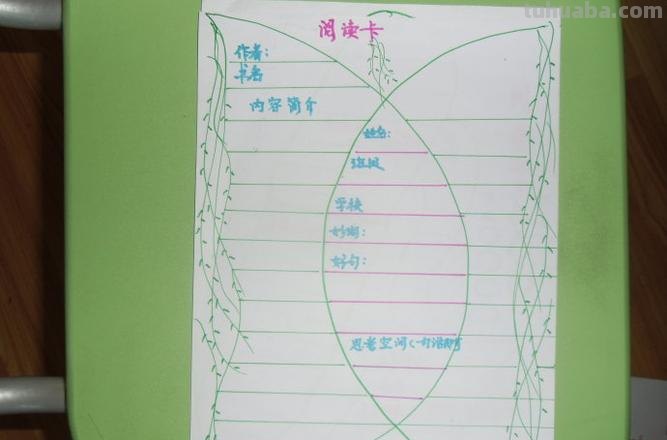 tuhuaba.com
阅读卡
作者：
书名
内容简介
姓名：
班级
学校
妙词：
好句：
思考空间（一句话即可